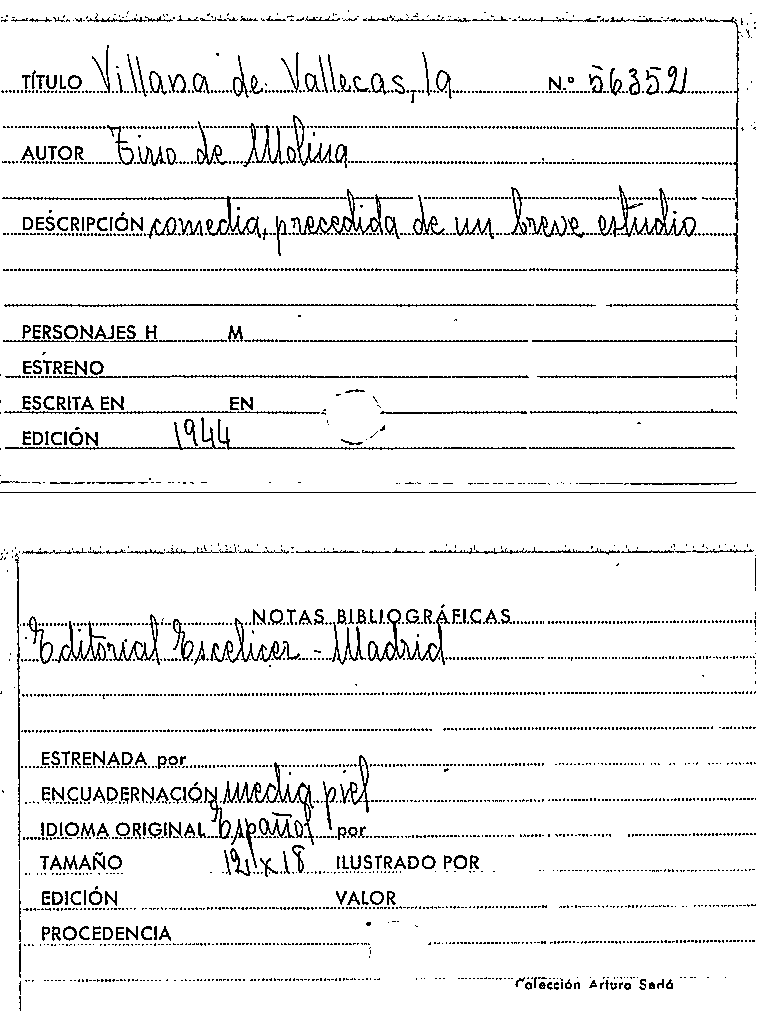 TÍTULO Villana de Vallecas, la N.º 563521
AUTOR Tirso de Molina
DESCRIPCIÓN comedia, precedida de un breve estudio
PERSONAJES H M
ESTRENO
ESCRITA EN EN
EDICIÓN 1944
NOTAS BIBLIOGRÁFICAS
Editorial Escelicer - Madrid
ESTRENADA por
ENCUADERNACIÓN media piel
IDIOMA ORIGINAL Español por
TAMAÑO 12 x 18 ILUSTRADO POR
EDICIÓN VALOR
PROCEDENCIA
Colección Arturo Sedó